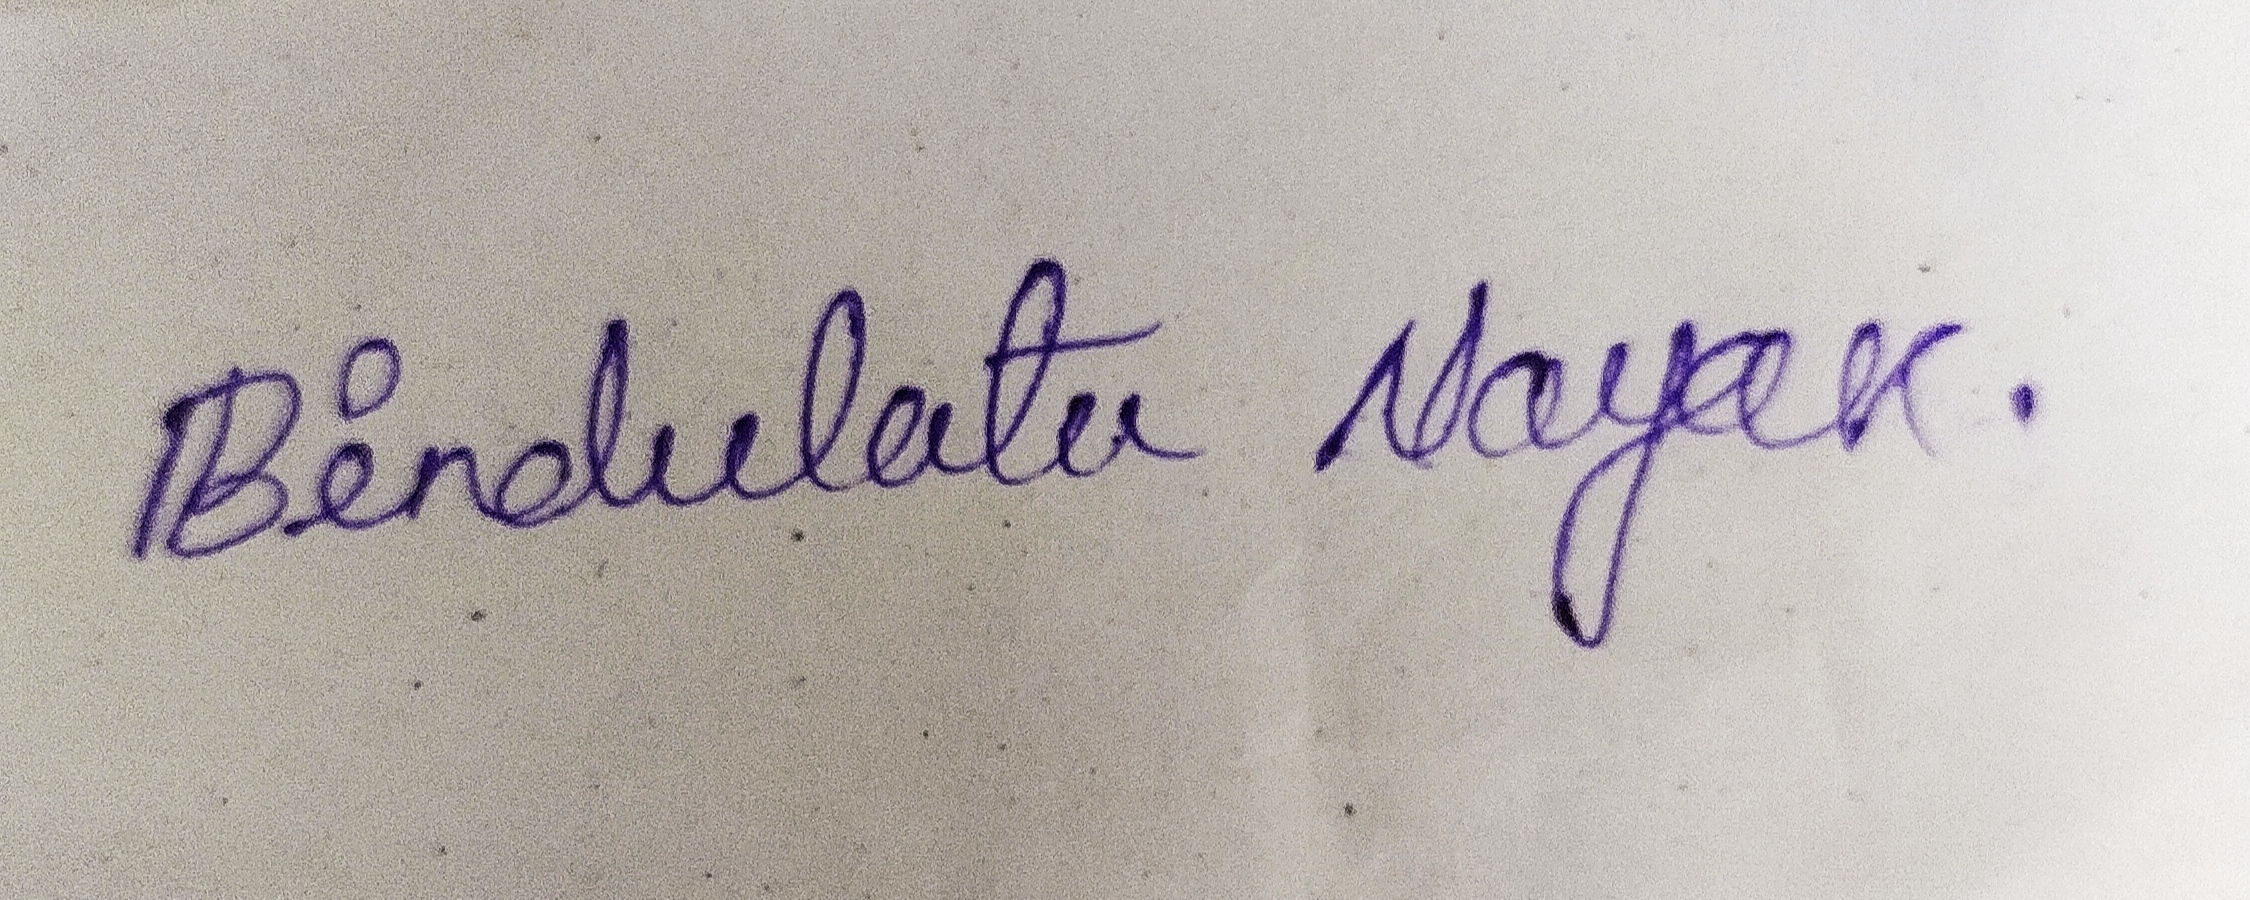 Bindulata Nayak.